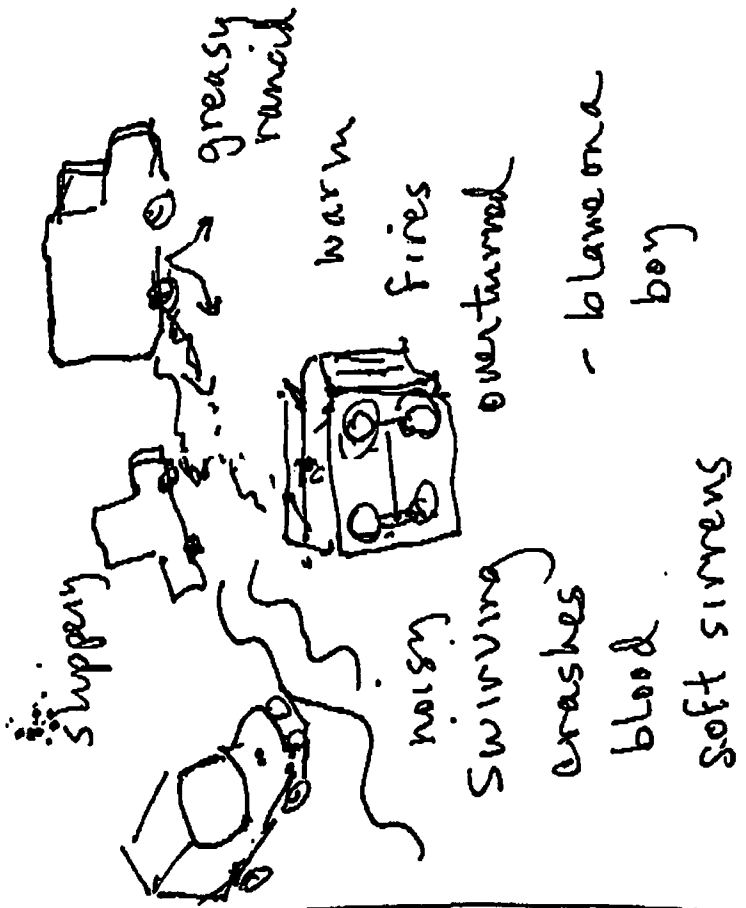 slippery
greasy
rancid
warm
fires
overturned
- blame on a
boy
noisy
Swirving
crashes
blood
soft sirrens